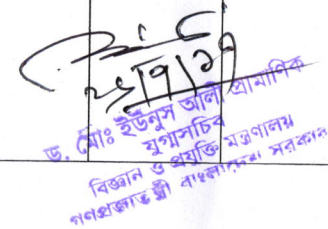 ২৮/৭/১৭
ড. মোঃ ইউনুস আলী প্রামাণিক
যুগ্মসচিব
বিজ্ঞান ও প্রযুক্তি মন্ত্রণালয়
গণপ্রজাতন্ত্রী বাংলাদেশ সরকার